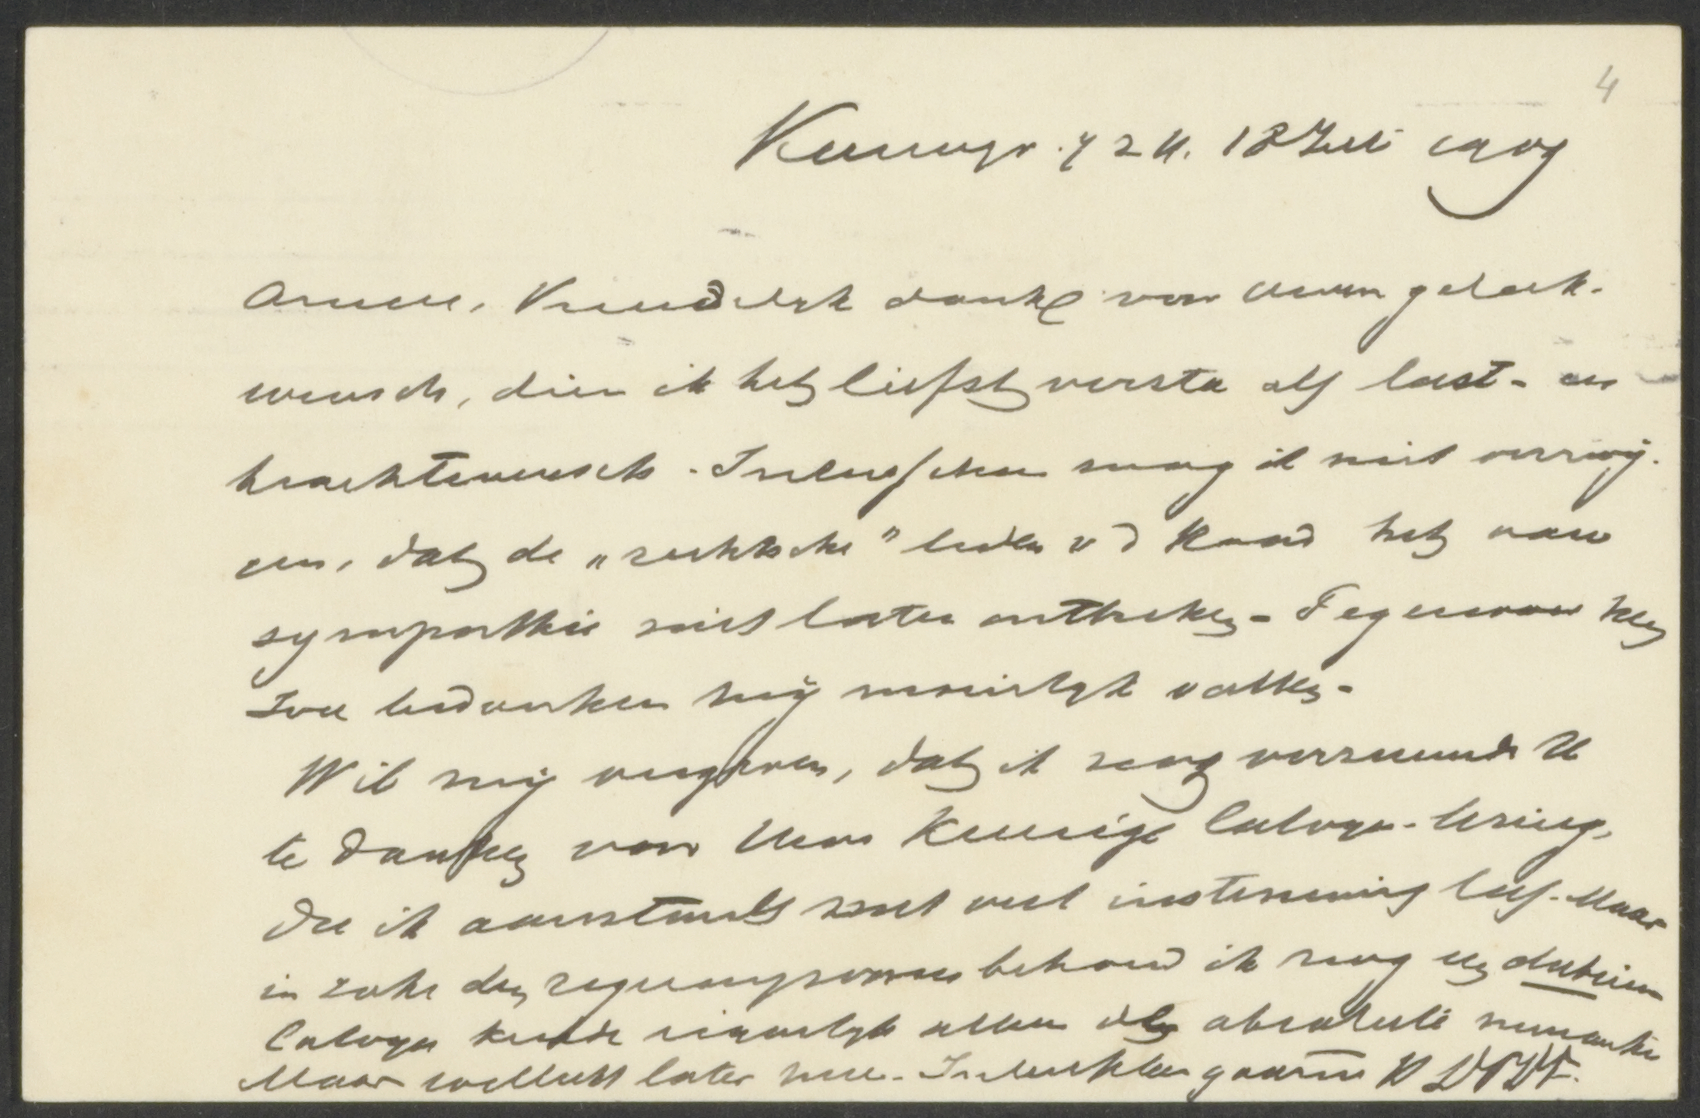 4
18 Juli 1909
Amice, Vriendelijk dank voor Uwen geluk-
wensch, dien ik het liefst versta als lust- en
krachtswensch. Intusschen mag ik niet verzwij-
gen, dat de „rechtsche" leden v d Raad het aan
sympathie niet laten ontbreken. Tegenover hen
zou bedanken mij moeilijk vallen.
Wil mij vergeven, dat ik nog verzuimde U
te danken voor Uwe keurige Calvijn-
die ik aanstonds met veel instemming las. Maar
in zake den regeeringsvorm behoud ik nog een dubium
Calvijn kende eigenlijk alleen de absolute monarchie
Maar wellicht later meer. Intusschen gaarne